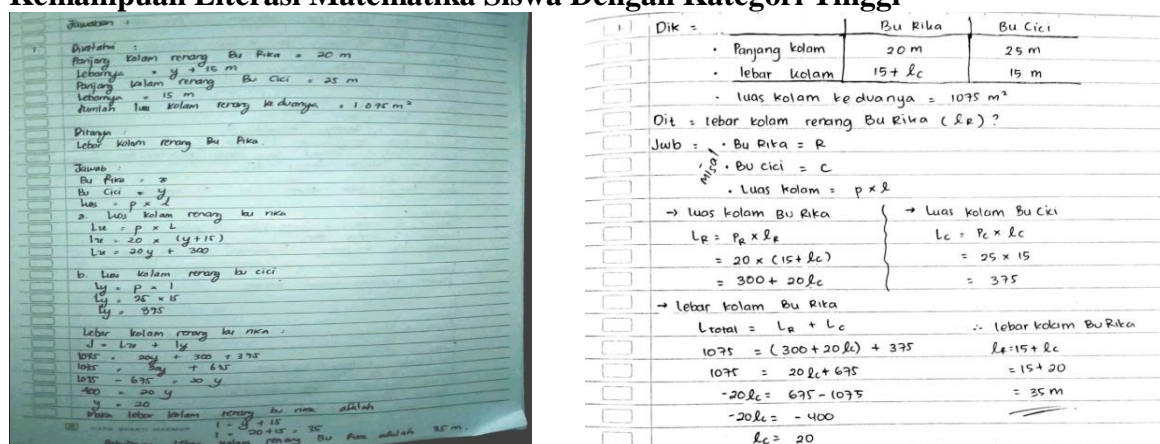 Kemampuan Literasi Matematika Siswa Dengan Kategori Tinggi
Jawaban :
1 Diketahui :
Panjang kolam renang Bu Rika = 20 m
Lebarnya = y + 15 m
Panjang kolam renang Bu Cici = 25 m
Lebarnya = 15 m
Jumlah luas kolam renang keduanya = 1.075 m²
Ditanya :
Lebar kolam renang Bu Rika.
Jawab :
Bu Rika = x
Bu Cici = y
Luas = p × l
a. Luas kolam renang bu rika
Lx = p × L
Lx = 20 × (y+15)
Lx = 20y + 300
b. Luas kolam renang bu cici
Ly = p × l
Ly = 25 × 15
Ly = 375
Lebar kolam renang bu rika :
J = Lx + Ly
1075 = 20y + 300 + 375
1075 = 20y + 675
1075 - 675 = 20 y
400 = 20 y
y = 20
Maka lebar kolam renang bu rika adalah
l = y + 15
l = 20+15 = 35
lebar kolam renang Bu Rika adalah 35 m.
1 Dik = Bu Rika Bu Cici
· Panjang kolam 20 m 25 m
· lebar kolam 15 + lc 15 m
· luas kolam keduanya = 1075 m²
Dit = lebar kolam renang Bu Rika (lR) ?
Jwb = Misal · Bu Rika = R
· Bu Cici = C
· Luas kolam = p × l
→ luas kolam Bu Rika
LR = PR × lR
= 20 × (15 + lc)
= 300 + 20lc
→ Luas kolam Bu Cici
Lc = Pc × lc
= 25 × 15
= 375
→ lebar kolam Bu Rika
Ltotal = LR + Lc
1075 = (300 + 20lc) + 375
1075 = 20lc + 675
-20lc = 675 - 1075
-20lc = - 400
lc = 20
∴ lebar kolam Bu Rika
lR = 15 + lc
= 15 + 20
= 35 m